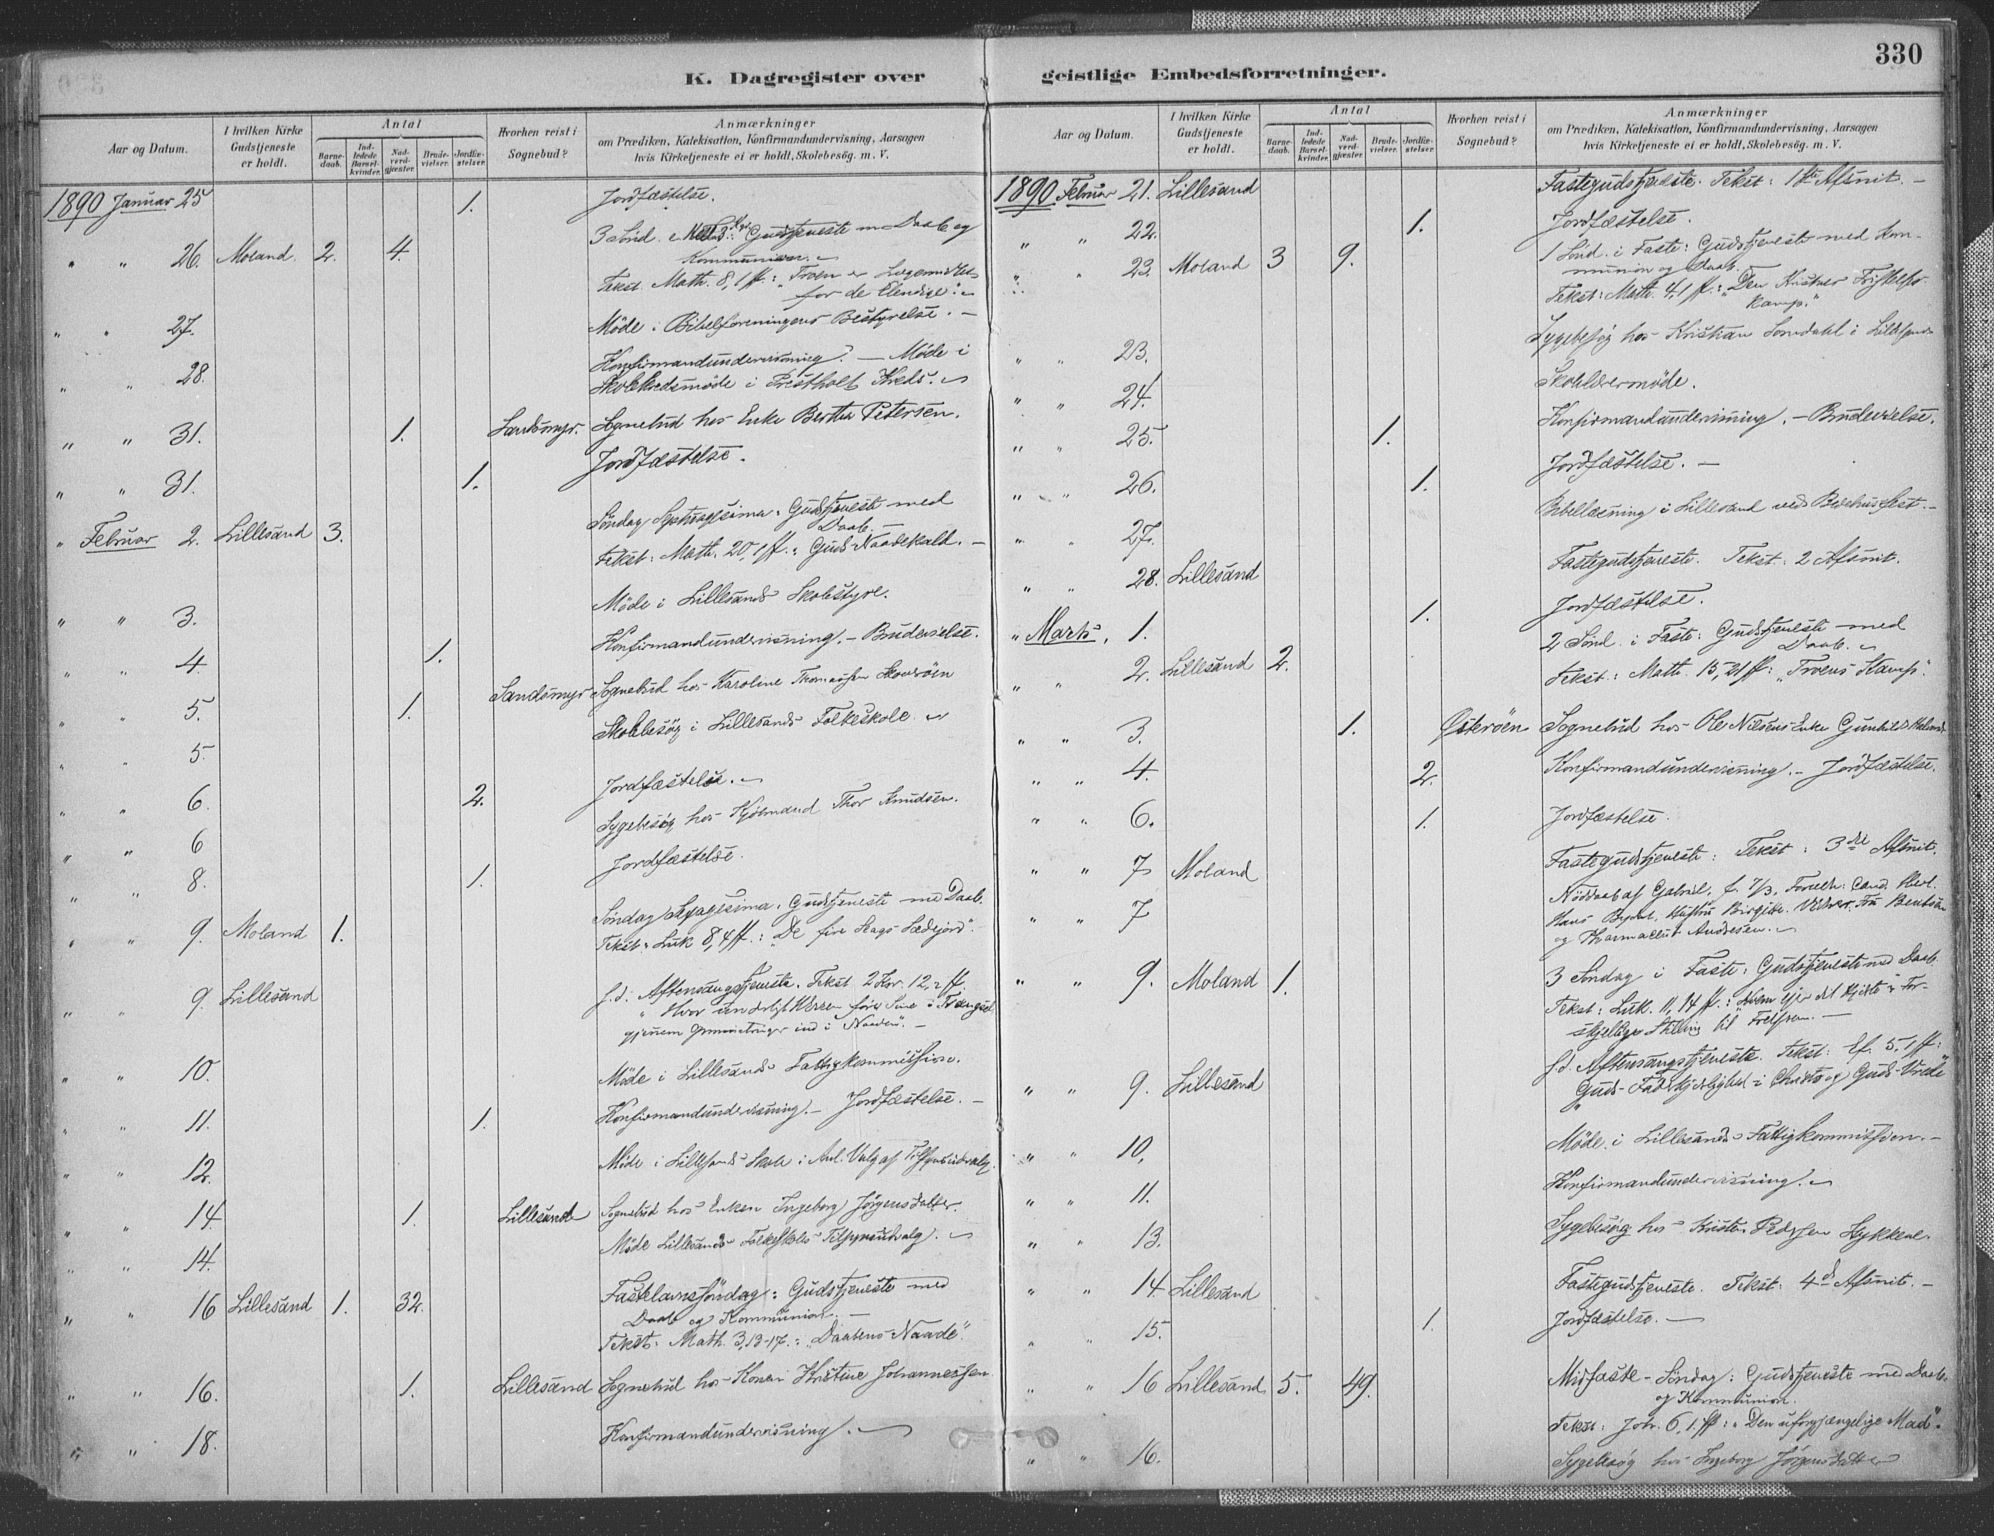 330
K. Dagregister over geistlige Embedsforretninger.
Aar og Datum.
I hvilken Kirke Gudstjeneste er holdt.
Antal
Barnedaab.
Indledede Barselkvinder.
Nadverdgjester.
Brudevielser.
Jordfæstelser.
Hvorhen reist i Sognebud?
Anmærkninger
om Prædiken, Katekisation, Konfirmandundervisning, Aarsagen
hvis Kirketjeneste ei er holdt, Skolebesøg. m. V.
1890 Januar 25 1. Jordfæstelse.
" " 26. Moland. 2. 4. 3 Sönd. Gudstjeneste m Daab og
Kommunion.
Tekst. Math. 8, 1 ff: "Troen er Lægemidlet
for de Elendige".
" " 27. Möde i Bibelforeningens Bestyrelse. —
" " 28. Konfirmandundervisning. — Möde i
Skolekredsmöde i Prestholt Kreds.
" " 31. 1. Sandsmyr. Sognebud hos Enke Bertha Petersen.
" " 31. 1. Jordfæstelse.
" Februar 2. Lillesand 3. Söndag Septuagesima: Gudstjeneste med
Daab.
Tekst: Math. 20, 1 ff. "Guds Naadekald. —
" " 3. Möde i Lillesands Skolestyre.
" " 4. 1. Konfirmandundervisning. — Brudevielse.
" " 5. 1. Sandsmyr Sognebud hos Karoline Thomassen
" " 5. Skolebesög i Lillesands Folkeskole.
" " 6. 2. Jordfæstelse.
" " 6 Sygebesög hos Kjöbmand Thor Knudsen.
" " 8. 1. Jordfæstelse.
" " 9. Moland 1. Söndag Sexagesima. Gudstjeneste med Daab.
Tekst: Luk 8, 4 ff.: "De fire Slags Sædejord".
" " 9. Lillesand s. d. Aftensangstjeneste. Tekst. 2 Kor. 12, 2 ff.
"Hvor underligt Herren förer Sine i Trængsel
gjennem ind i Naaden". —
" " 10. Möde i Lillesands Fattigkommission.
" " 11. 1. Konfirmandundervisning. — Jordfæstelse. —
" " 12. Möde i Lillesands Skole i Anl. Valg af Tilsynsudvalg.
" " 14 1. Lillesand Sognebud hos Enken Ingeborg Jörgensdatter.
" " 14. Möde Lillesands Folkeskoles Tilsynsudvalg.
" " 16 Lillesand 1. 32. Fastelavnssöndag: Gudstjeneste med
Daab og Kommunion. —
Tekst: Math. 3, 13-17.: "Daabens Naade".
" " 16. 1. Lillesand Sognebud hos Konen Kristine Johannessen.
" " 18. Konfirmandundervisning.
Aar og Datum.
I hvilken Kirke Gudstjeneste er holdt.
Antal
Barnedaab.
Indledede Barselkvinder.
Nadverdgjester.
Brudevielser.
Jordfæstelser.
Hvorhen reist i Sognebud?
Anmærkninger
om Prædiken, Katekisation, Konfirmandundervisning, Aarsagen
hvis Kirketjeneste ei er holdt, Skolebesøg. m. V.
1890 Februar 21. Lillesand Fastegudstjeneste. Tekst: 1ste Afsnit. —
" " 22. 1. Jordfæstelse.
" " 23. Moland 3 9. 1 Sönd. i Faste: Gudstjeneste med Kom-
munion og Daab.
Tekst: Math. 4, 1 ff.: "Den Kristnes Fristelses-
kamp."
" " 23. Sygebesög hos Kristian i Lillesand
" " 24. Skolelærermöde.
" " 25. 1. Konfirmandundervisning. — Brudevielse.
" " 26. 1. Jordfæstelse. —
" " 27. Bibellæsning i Lillesand ved Bedehusfest. —
" " 28. Lillesand Fastegudstjeneste. Tekst: 2 Afsnit.
" Marts. 1. 1. Jordfæstelse.
" " 2. Lillesand 2. 2 Sönd. i Faste: Gudstjeneste med
Daab.
Tekst: Math. 15, 21 ff: "Troens Kamp".
" " 3. 1. Österöen Sognebud hos Ole Nilsens Enke Gunhild
" " 4. 2. Konfirmandundervisning. — Jordfæstelse.
" " 6. 1. Jordfæstelse.
" " 7 Moland Fastegudstjeneste: Tekst: 3die Afsnit.
" " 7 Nöddaab af Gabriel, f. 7/3, Forældr: Cand.
Hans Hustru Birgitte. Vidner: Fru Bentsen
og Pharmaceut Andresen.
" " 9. Moland 1. 3 Söndag i Faste: Gudstjeneste med Daab.
Tekst: Luk. 11, 14 ff.: "Hvem ejer dit Hjerte" For-
skjellige Stilling til Frelseren. —
" " 9. Lillesand s. d. Aftensangstjeneste. Tekst: Ef. 5, 1 ff:
"Guds Faderkjærlighed i Christo og Guds Vrede"
" " 10, Möde i Lillesands Fattigkommission. —
" " 11. Konfirmandundervisning.
" " 13. Sygebesög hos Pedersen
" " 14 Lillesand Fastegudstjeneste. Tekst: 4de Afsnit. —
" " 15. 1. Jordfæstelse. —
" " 16 Lillesand 5. 49. Midfaste-Söndag: Gudstjeneste med Daab
og Kommunion.
Tekst: Joh. 6, 1 ff: "Den uforgjængelige Mad".
" " 16. Sygebesög hos Ingeborg Jörgensdatter